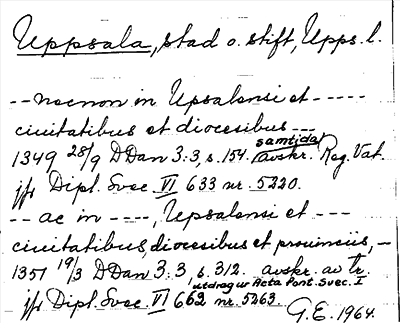 Uppsala, stad o. stift, Upps. l.
-- necnon in Upsalensi et -----
ciuitatibus et diocesibus ---
samtida
1349 28/9 DDan 3:3, s. 154. avskr. Reg. Vat.
jfr Dipl. Svec. VI 633 nr. 5220.
-- ac in ----, Upsalensi et ---
ciuitatibus, diocesibus et prouinciis, -
1351 19/3 DDan 3:3, s. 312. avskr. av tr.
utdrag ur Acta Pont. Svec. I
jfr Dipl. Svec. VI 662 nr. 5263.
G.E. 1964.